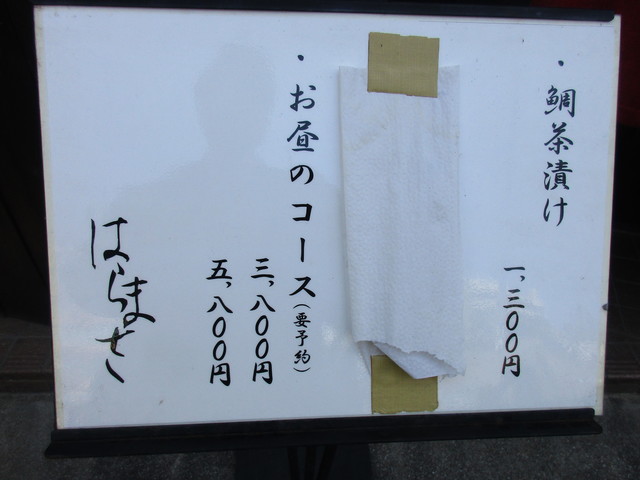 ・鯛茶漬け
一、三〇〇円
・お昼のコース（要予約）
三、八〇〇円
五、八〇〇円
はらまさ